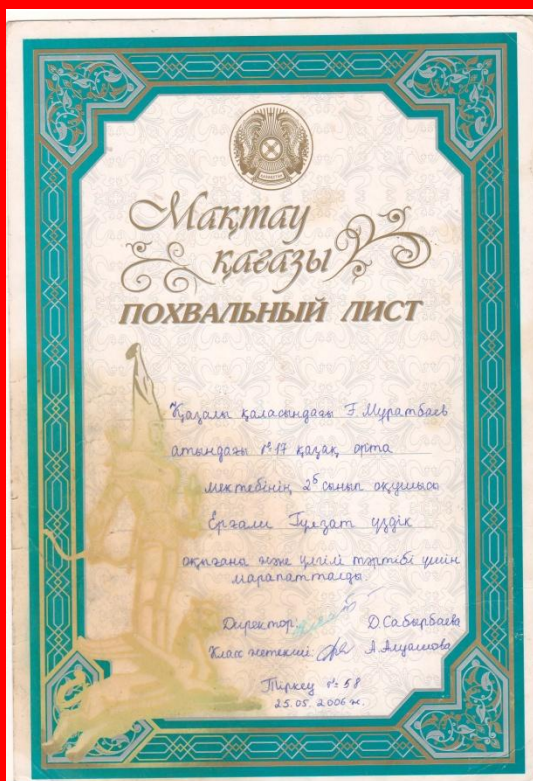 ҚАЗАҚСТАН
Мақтау
қағазы
ПОХВАЛЬНЫЙ ЛИСТ
Қазалы қаласындағы Ғ.Мұратбаев
атындағы №17 қазақ орта
мектебінің 2б сынып оқушысы
Ерғали Гүлзат үздік
оқығаны және үлгілі тәртібі үшін
марапатталды.
Директор: Д.Сабырбаева
Класс жетекші: А.
Тіркеу № 58
25.05.2006 ж.